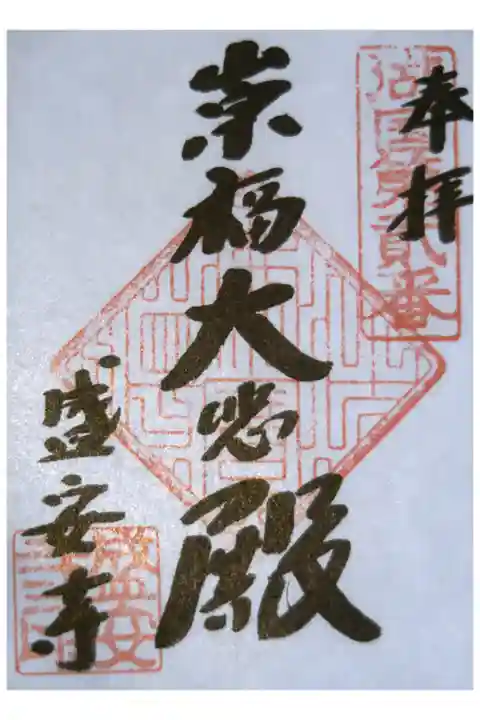 奉拝
湖国第貳番
崇福大悲殿
盛安寺